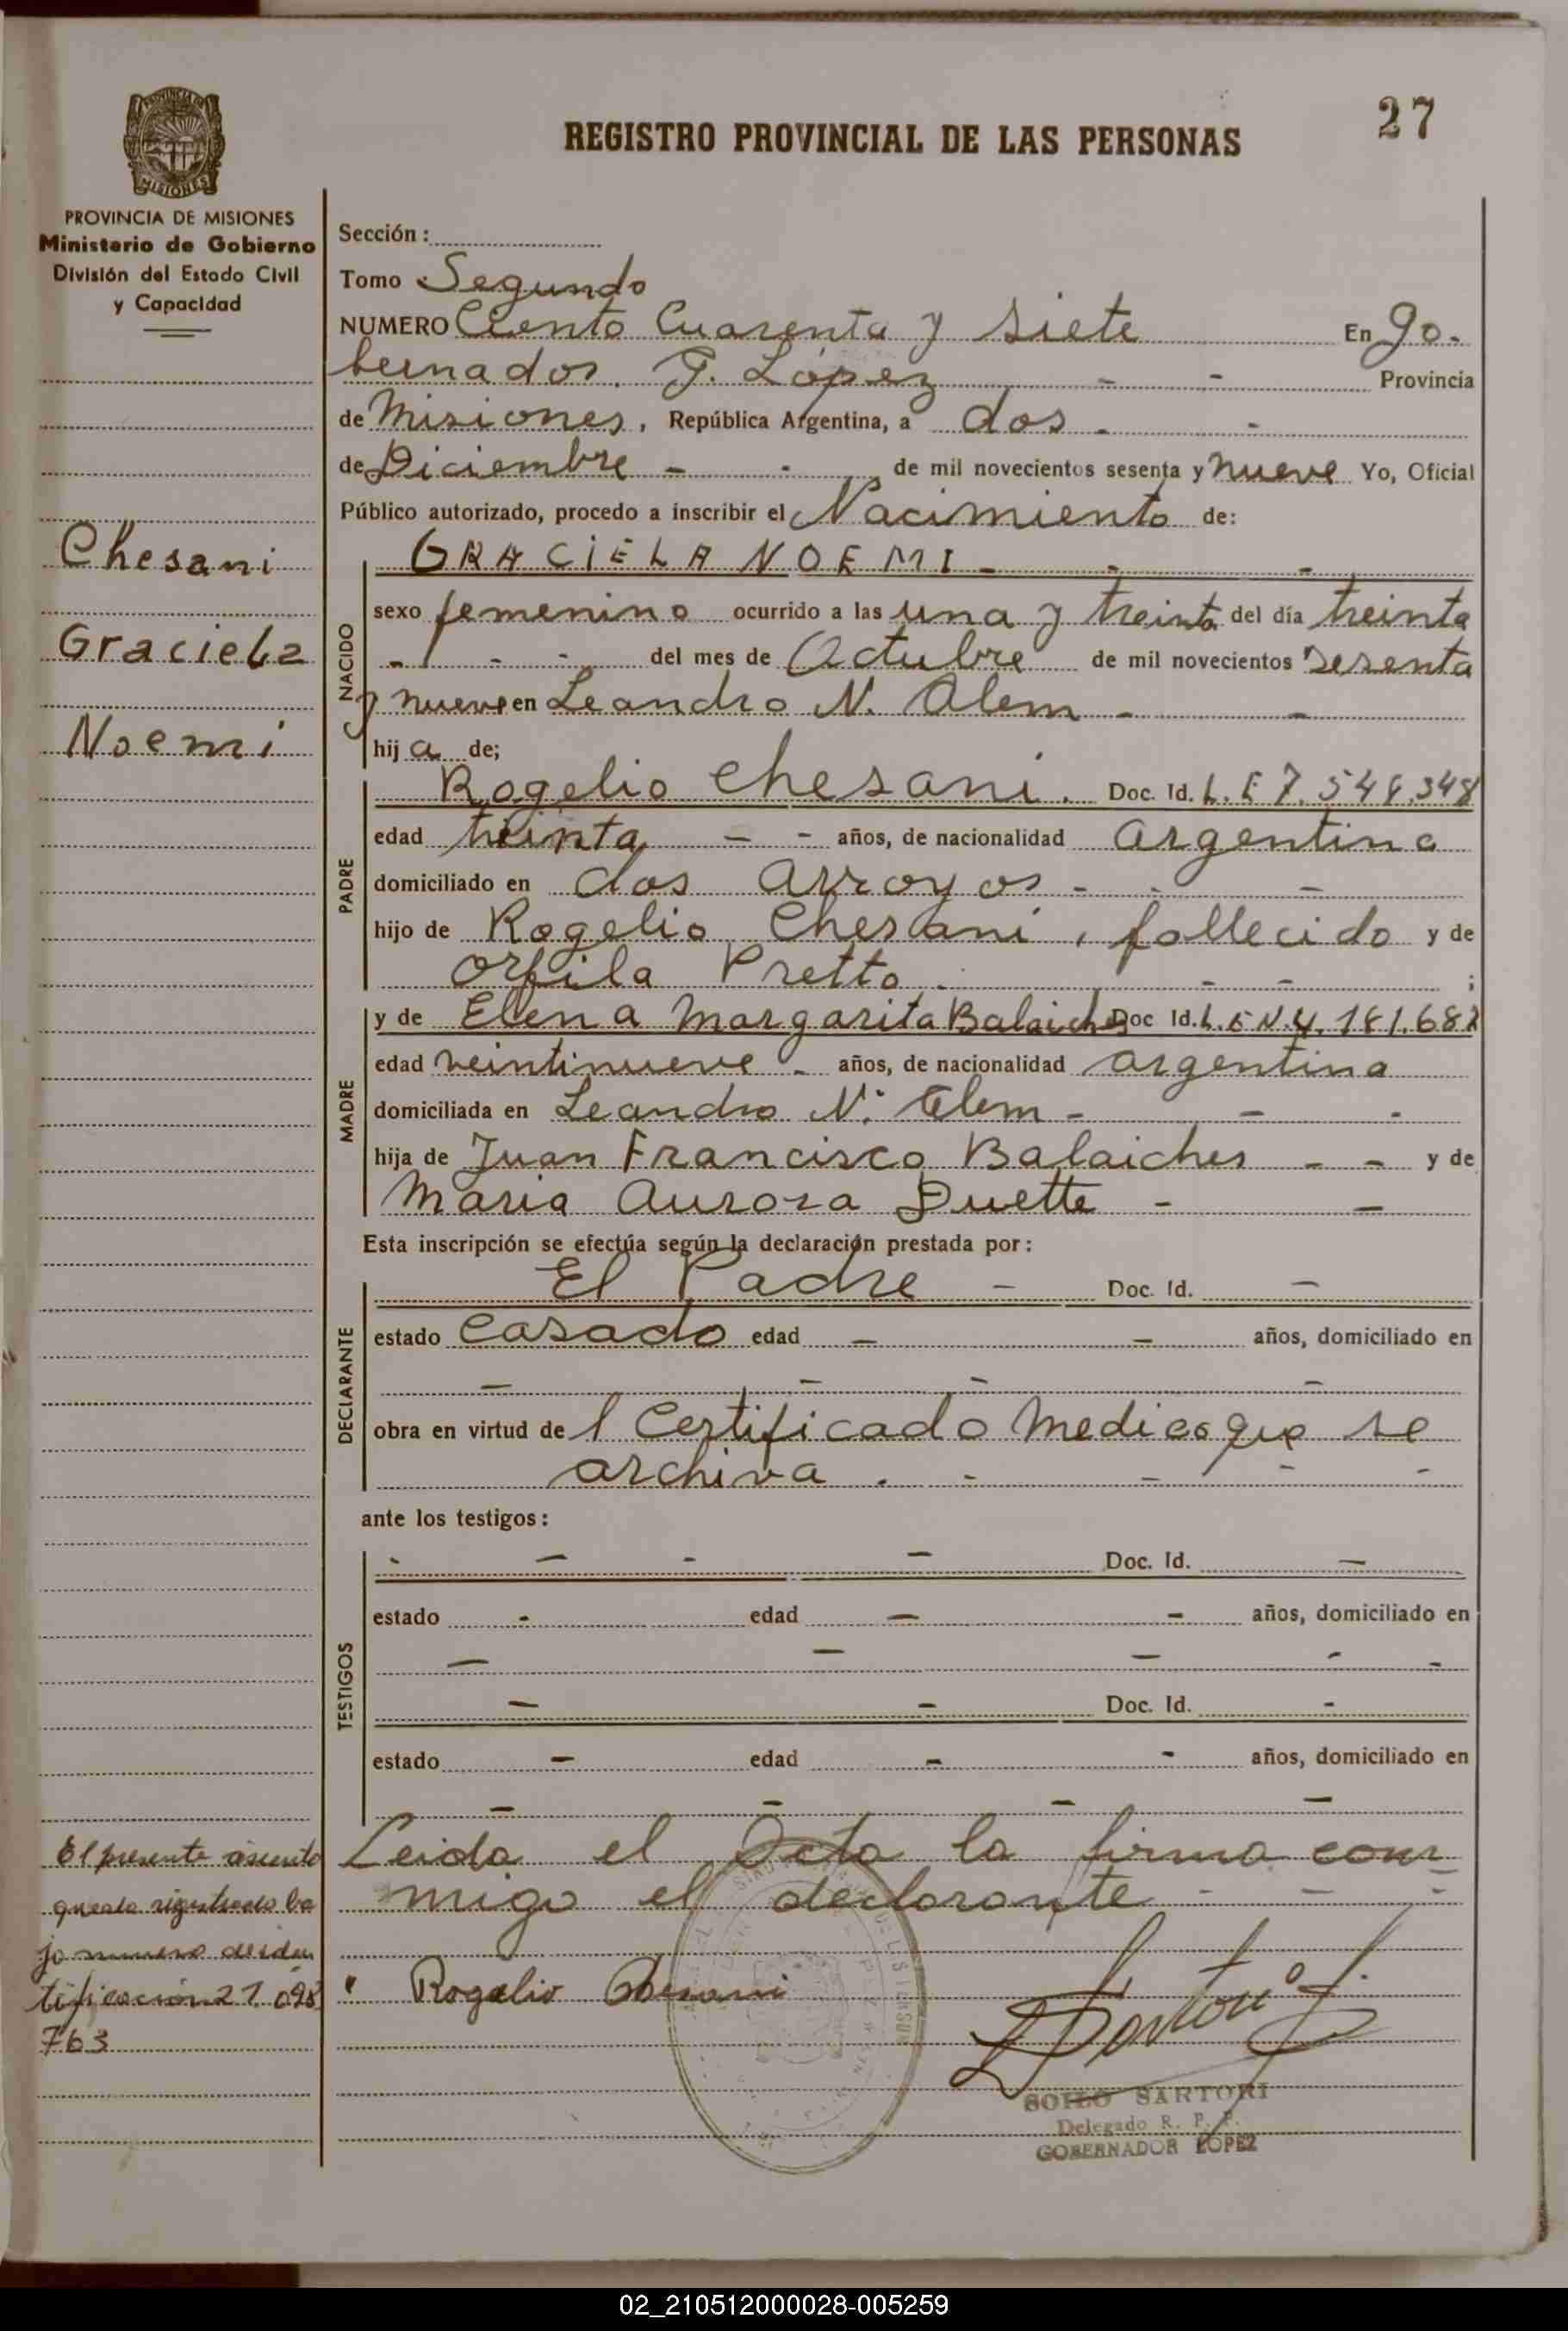 27
REGISTRO PROVINCIAL DE LAS PERSONAS
PROVINCIA DE MISIONES
MISIONES
PROVINCIA DE MISIONES
Ministerio de Gobierno
División del Estado Civil
y Capacidad
Chesani
Graciela
Noemi
Sección:
Tomo Segundo
NUMERO Ciento Cuarenta y siete En Go-
bernador. G. López - - Provincia
de Misiones, República Argentina, a dos - -
de Diciembre - - de mil novecientos sesenta y nueve Yo, Oficial
Público autorizado, procedo a inscribir el Nacimiento de:
NACIDO
GRACIELA NOEMI - - -
sexo femenino ocurrido a las una y treinta del día treinta
- - - del mes de Octubre de mil novecientos sesenta
y nueve en Leandro N. Alem - -
hij a de;
PADRE
Rogelio Chesani. Doc. Id. L. E 7.548.348
edad treinta - - años, de nacionalidad argentina
domiciliado en dos arroyos - - -
hijo de Rogelio Chesani, fallecido y de
Orfila Pretto - - - ;
MADRE
y de Elena Margarita Balaiches Doc Id. L. C N. 4.181.682
edad veintinueve - años, de nacionalidad argentina
domiciliada en Leandro N. Alem - - -
hija de Juan Francisco Balaiches - - y de
Maria Aurora Duette - -
Esta inscripción se efectúa según la declaración prestada por:
DECLARANTE
El Padre - Doc. Id. -
estado Casado edad - - años, domiciliado en
- - - -
obra en virtud de l Certificado Medico que se
archiva. - - - -
ante los testigos:
TESTIGOS
- - - - Doc. Id. -
estado - edad - - años, domiciliado en
- - - - -
- - Doc. Id. -
estado - edad - - años, domiciliado en
- - - -
Leida el Acta la firma con-
migo el declarante - - -
Rogelio Chesani
El presente asiento
queda registrado ba
jo numero de iden
tificación 21.098
763
SOILO SARTORI
Delegado R. P. P.
GOBERNADOR LOPEZ
02_210512000028-005259